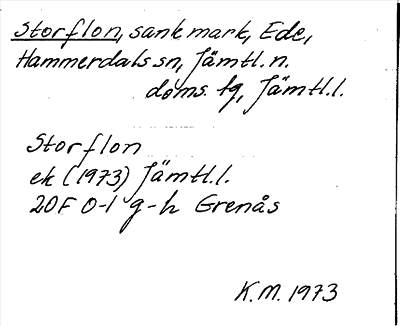 Storflon, sank mark, Ede,
Hammerdals sn, Jämtl. n.
doms. sg, Jämtl. l.
Storflon
ek (1973) Jämtl. l.
20F 0-1 g-h Grenås
K.M. 1973